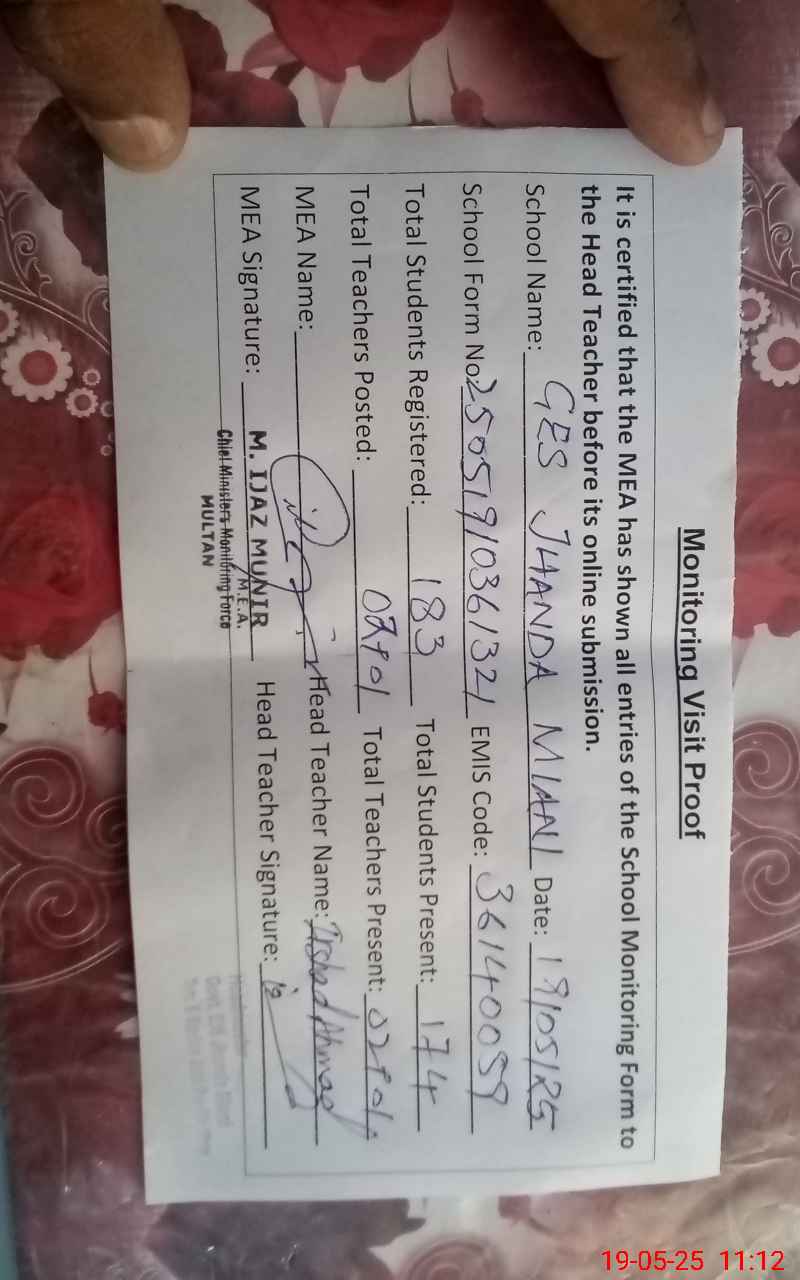 Monitoring Visit Proof
It is certified that the MEA has shown all entries of the School Monitoring Form to
the Head Teacher before its online submission.
School Name: GES JHANDA MIANI Date: 19/05/25
School Form No. 250519/036/321 EMIS Code: 36140059
Total Students Registered: 183 Total Students Present: 174
Total Teachers Posted: 02+01 Total Teachers Present: 02+01
MEA Name: Head Teacher Name: Irshad Ahmad
MEA Signature: M. IJAZ MUNIR Head Teacher Signature:
M.E.A.
Chief Ministers Monitoring Force
MULTAN
19-05-25 11:12